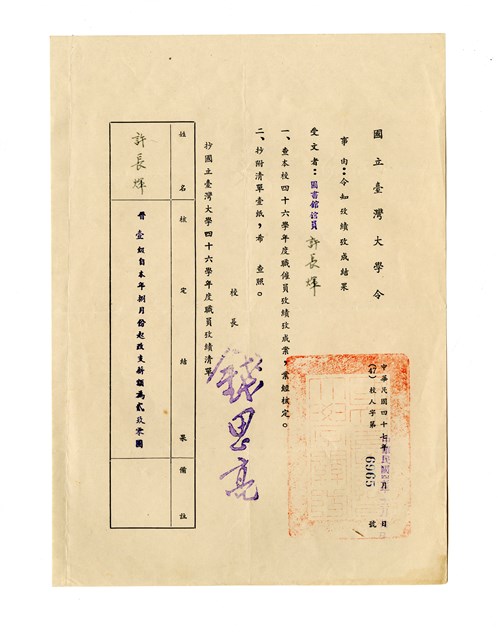 國立臺灣大學令
中華民國四十七年 月 日
校人字第 6965 號
事由：令知攷績攷成結果
受文者：圖書館館員 許長煇
一、查本校四十六學年度職僱員攷績攷成案，業經核定。
二、抄附清單壹紙，希 查照。
校長 錢思亮
抄國立臺灣大學四十六學年度職員攷績清單
姓名 核定結果 備註
許長煇 晉壹級自本年捌月份起改支薪額為貳玖零圓